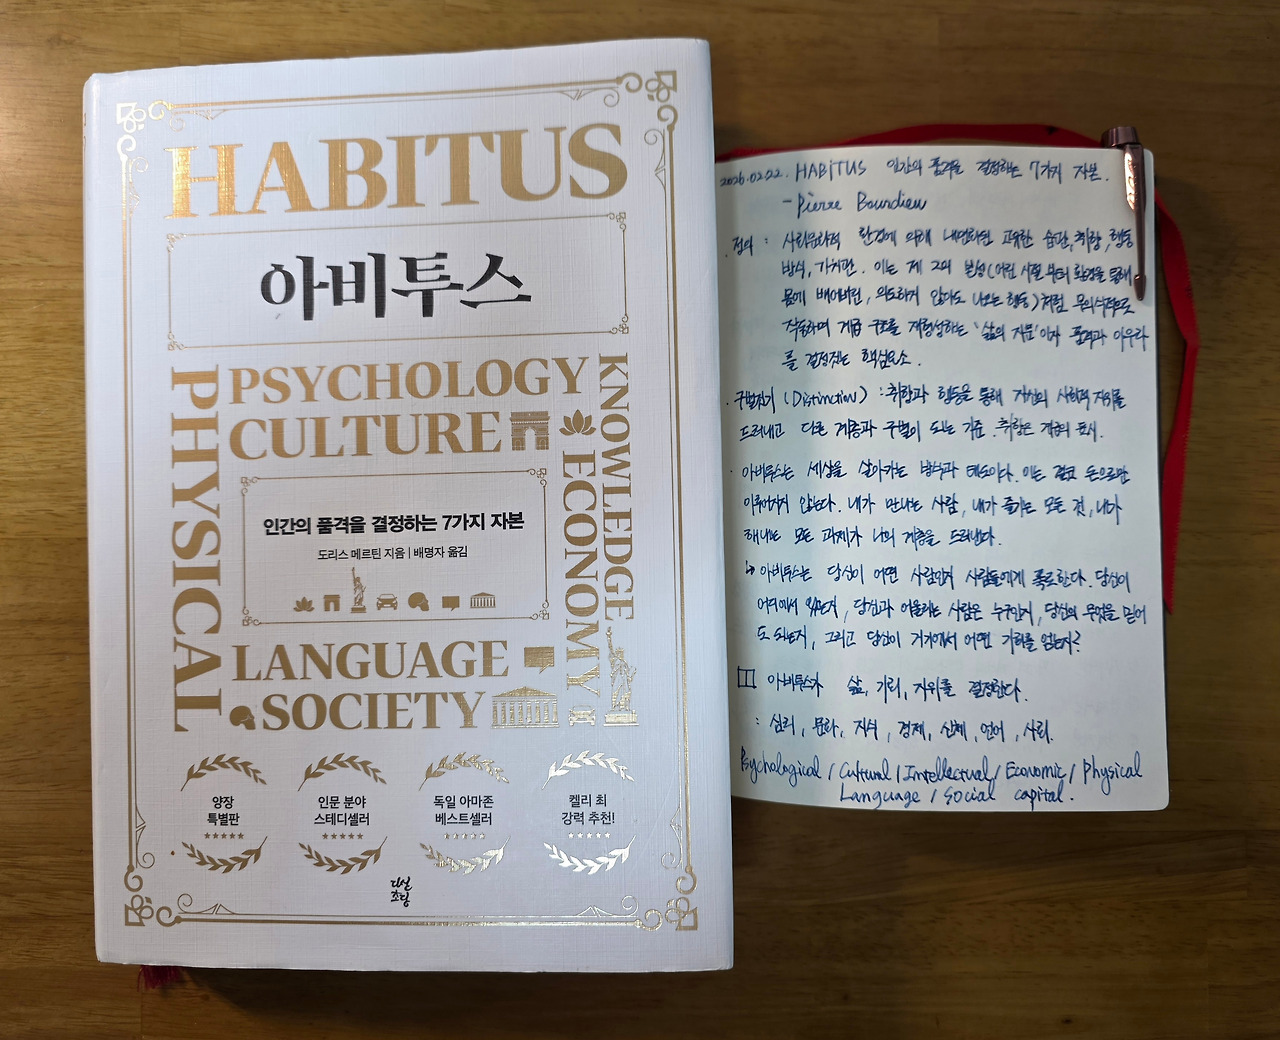 HABITUS
아비투스
PSYCHOLOGY
CULTURE
PHYSICAL
KNOWLEDGE
ECONOMY
인간의 품격을 결정하는 7가지 자본
도리스 메르틴 지음 | 배명자 옮김
LANGUAGE
SOCIETY
양장
특별판
인문 분야
스테디셀러
독일 아마존
베스트셀러
켈리 최
강력 추천!
다산
초당
2026.02.22. HABiTUS 인간의 품격을 결정하는 7가지 자본.
- Pierre Bourdieu
· 정의 : 사회문화적 환경에 의해 내면화된 고유한 습관, 취향, 행동
방식, 가치관. 이는 제 2의 본성(어린 시절부터 환경을 통해
몸에 배어버린, 의도하지 않아도 나오는 행동)처럼 무의식적으로
작동하며 계급 구조를 재형성하는 '삶의 지문'이자 품격과 아우라
를 결정짓는 핵심요소.
· 구별짓기 (Distinction) : 취향과 행동을 통해 자신의 사회적 지위를
드러내고 다른 계층과 구별이 되는 기준. 취향은 계급의 표시.
· 아비투스는 세상을 살아가는 방식과 태도이다. 이는 결코 돈으로만
이루어지지 않는다. 내가 만나는 사람, 내가 즐기는 모든 것, 내가
해내는 모든 과제가 나의 계층을 드러낸다.
↳ 아비투스는 당신이 어떤 사람인지 사람들에게 폭로한다. 당신이
어디에서 왔는지, 당신과 어울리는 사람은 누구인지, 당신의 무엇을 믿어
도 되는지, 그리고 당신이 거기에서 어떤 기회를 얻는지?
아비투스가 삶, 기회, 지위를 결정한다.
: 심리, 문화, 지식, 경제, 신체, 언어, 사회.
Psychological / Cultural / Intellectual / Economic / Physical
Language / Social capital.